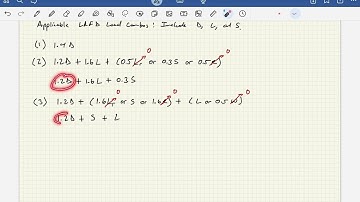 Applicable LRFD Load Combos: Include D, L, & S.
(1) 1.4D
(2) 1.2D + 1.6L + (0.5Lr or 0.3S or 0.5R)
0
0
1.2D + 1.6L + 0.3S
(3) 1.2D + (1.6Lr or S or 1.6R) + (L or 0.5W)
0
0
0
1.2D + S + L